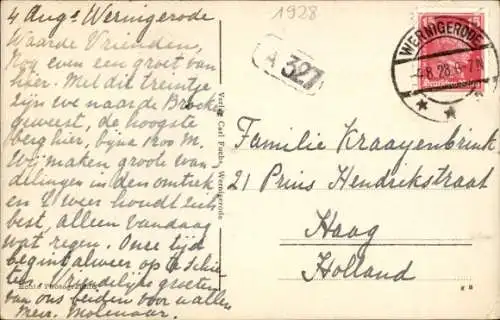 4 Aug. Wernigerode
Waarde Vrienden,
Nog even een groet van
hier. Met dit treintje
zijn we naar de Brocken
geweest, de hoogste
berg hier, bijna 1100 M.
Wij maken groote wan-
delingen in den omtrek
en 't weer houdt zich
best, alleen vandaag
wat regen. Onze tijd
begint alweer op te schie-
ten. Vriendelijke groeten
van ons beiden voor u allen
Mevr. Molenaar.
Echte Photographie
Verlag Carl Fuchs, Wernigerode
1928
A 327
WERNIGERODE
.8.28.
Deutsches Reich
Familie Kraayenbrink
21 Prins Hendrikstraat
Haag
Holland